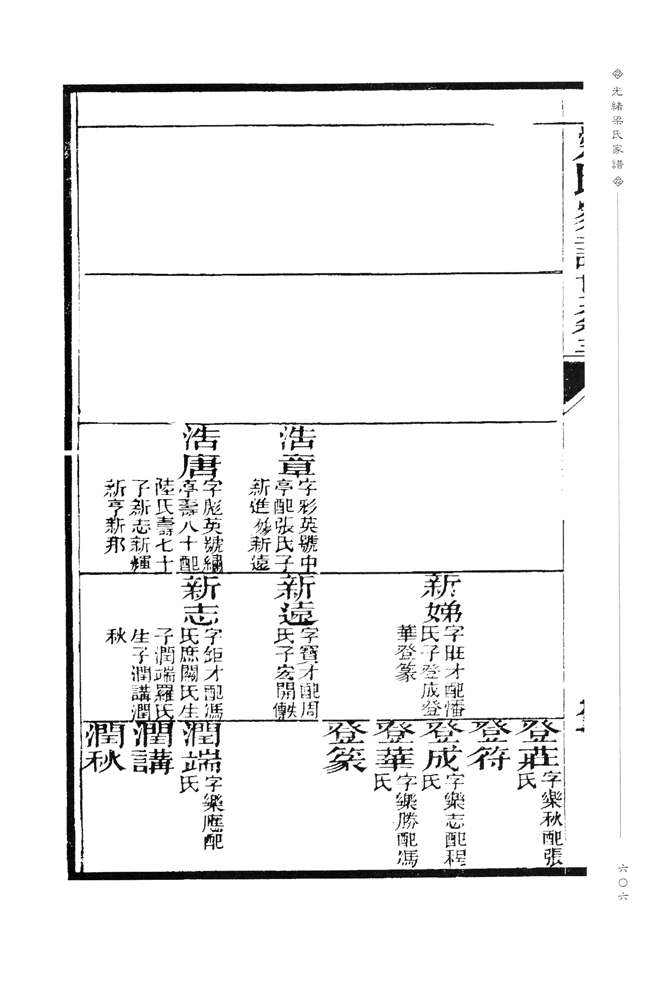 光緒梁氏家譜
六〇六
浩章
字彩英號中
亭配張氏子
新進 新遠
浩唐
字彪英號繡
亭壽八十配
陸氏壽七十
子新志新輝
新亨新那
新娣
字旺才配潘
氏子登成登
華登篆
新遠
字寶才配周
氏子宏開
新志
字鉅才配馮
氏庶關氏生
子潤端羅氏
生子潤講潤
秋
登莊
字樂秋配張
氏
登符
登成
字樂志配程
氏
登華
字樂勝配馮
氏
登篆
潤端
字樂庭配
氏
潤講
潤秋